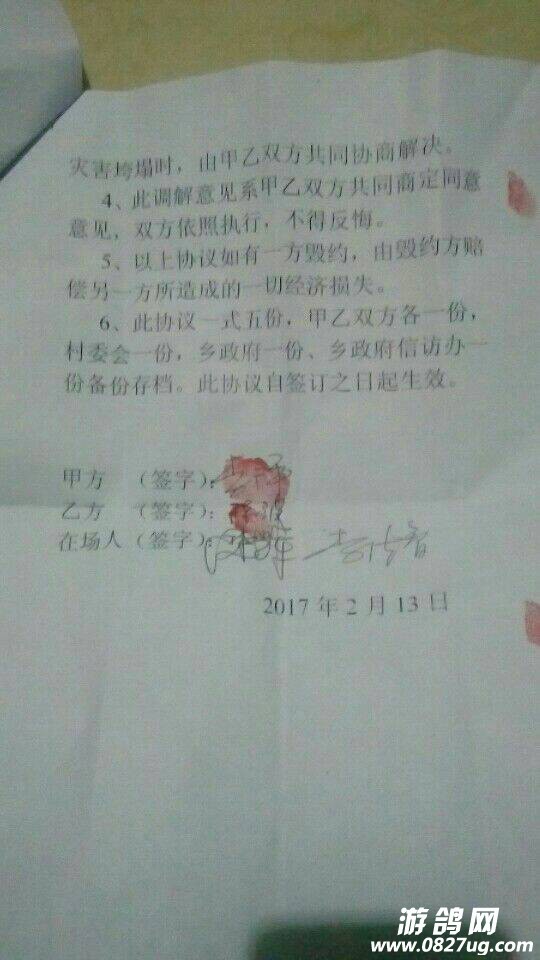 灾害垮塌时，由甲乙双方共同协商解决。
4、此调解意见系甲乙双方共同商定同意
意见，双方依照执行，不得反悔。
5、以上协议如有一方毁约，由毁约方赔
偿另一方所造成的一切经济损失。
6、此协议一式五份，甲乙双方各一份，
村委会一份，乡政府一份、乡政府信访办一
份备份存档。此协议自签订之日起生效。
甲方 （签字）：
乙方 （签字）：
在场人（签字）：
2017年2月13日
游鸽网
www.0827ug.com